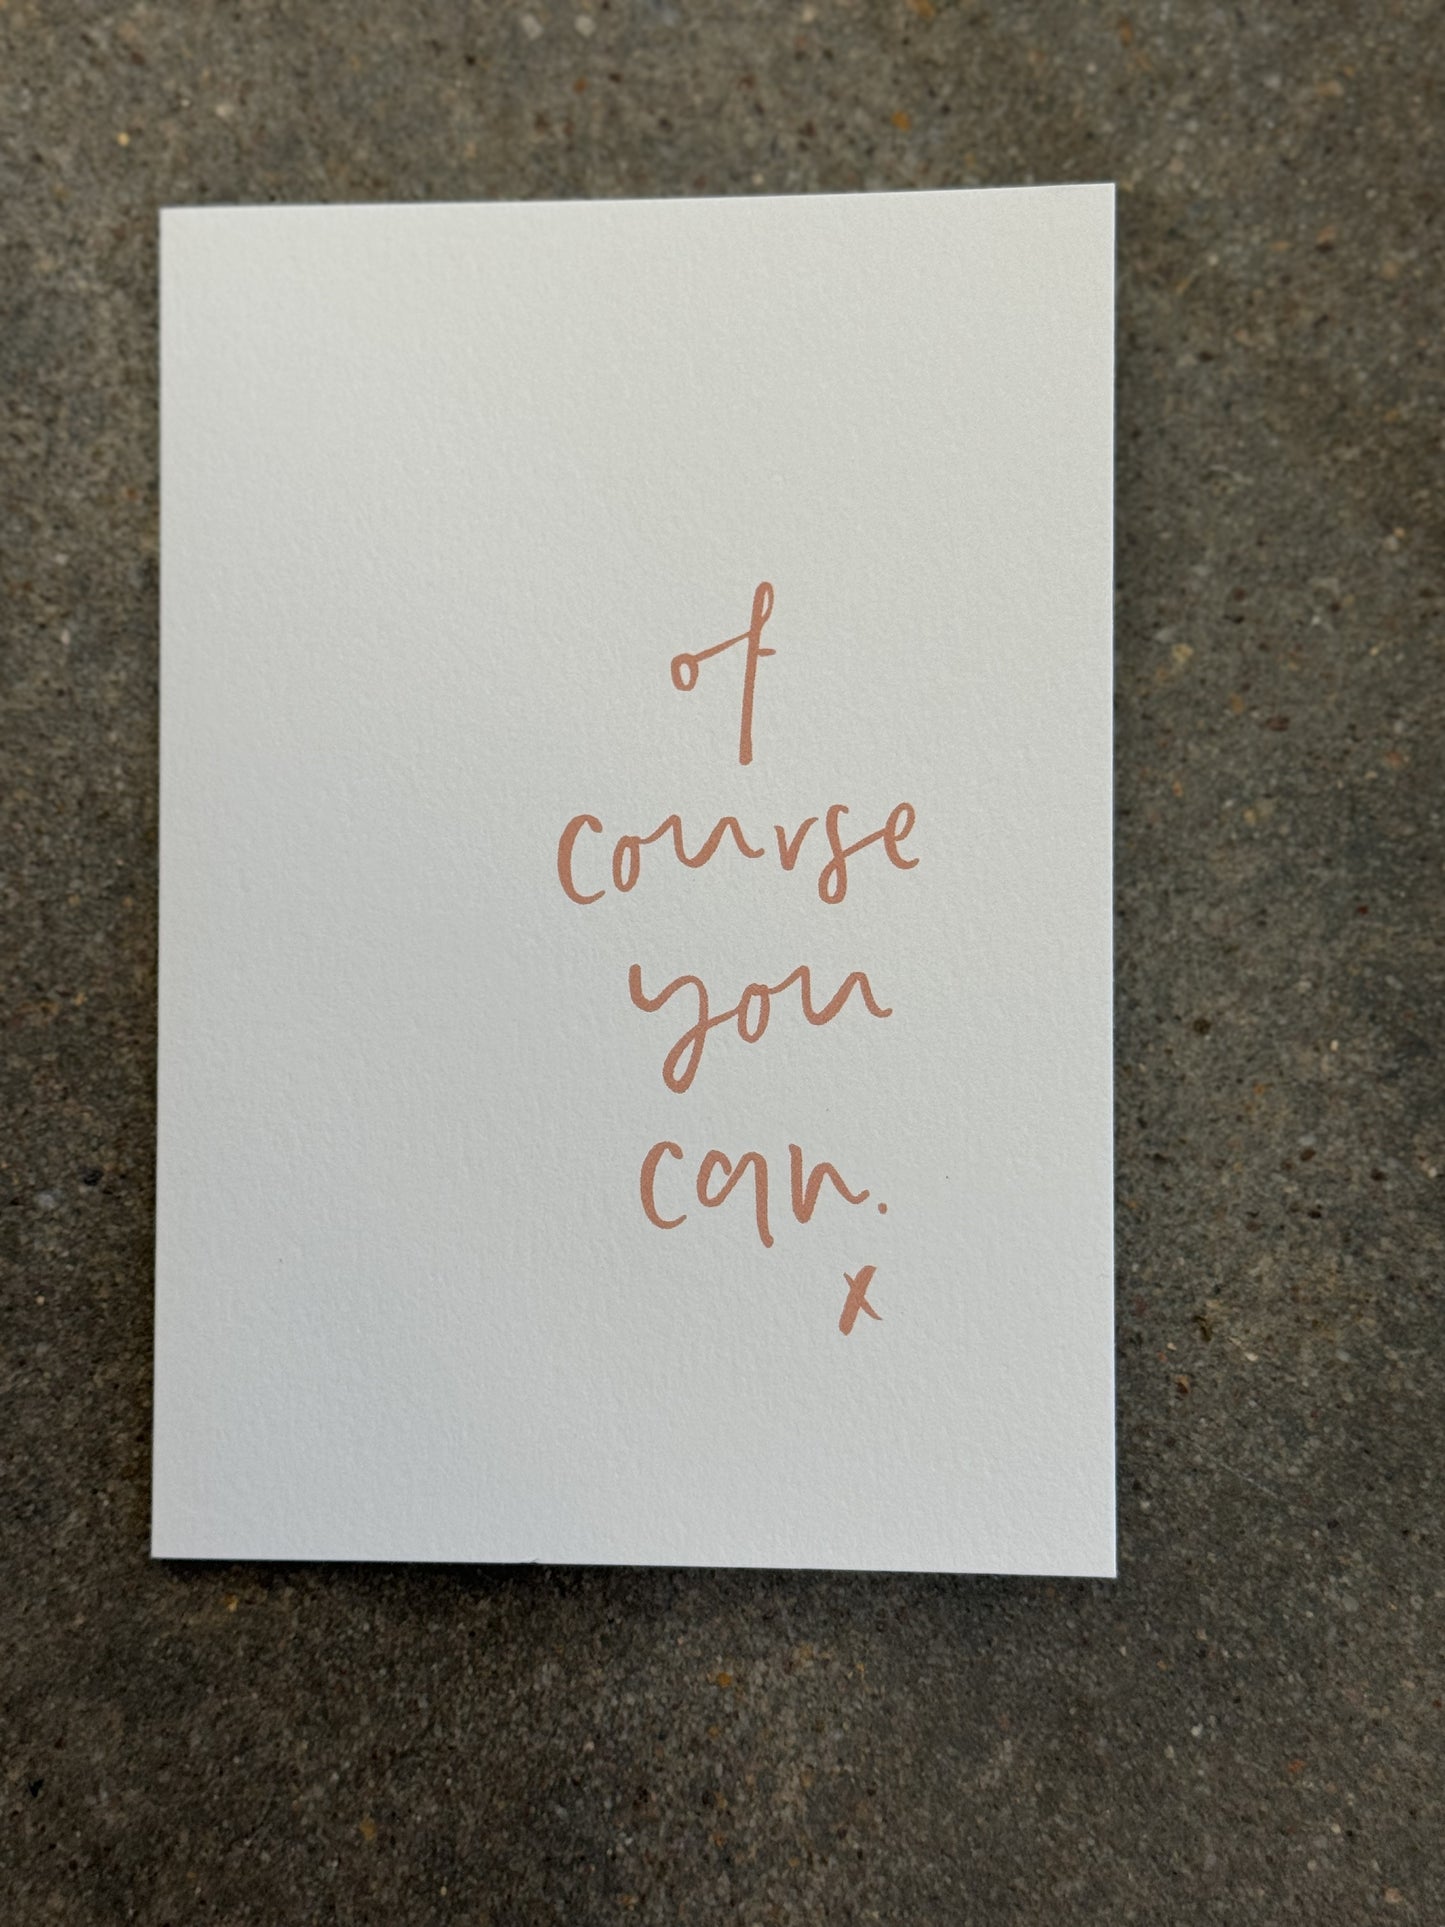 of
course
you
can.
x